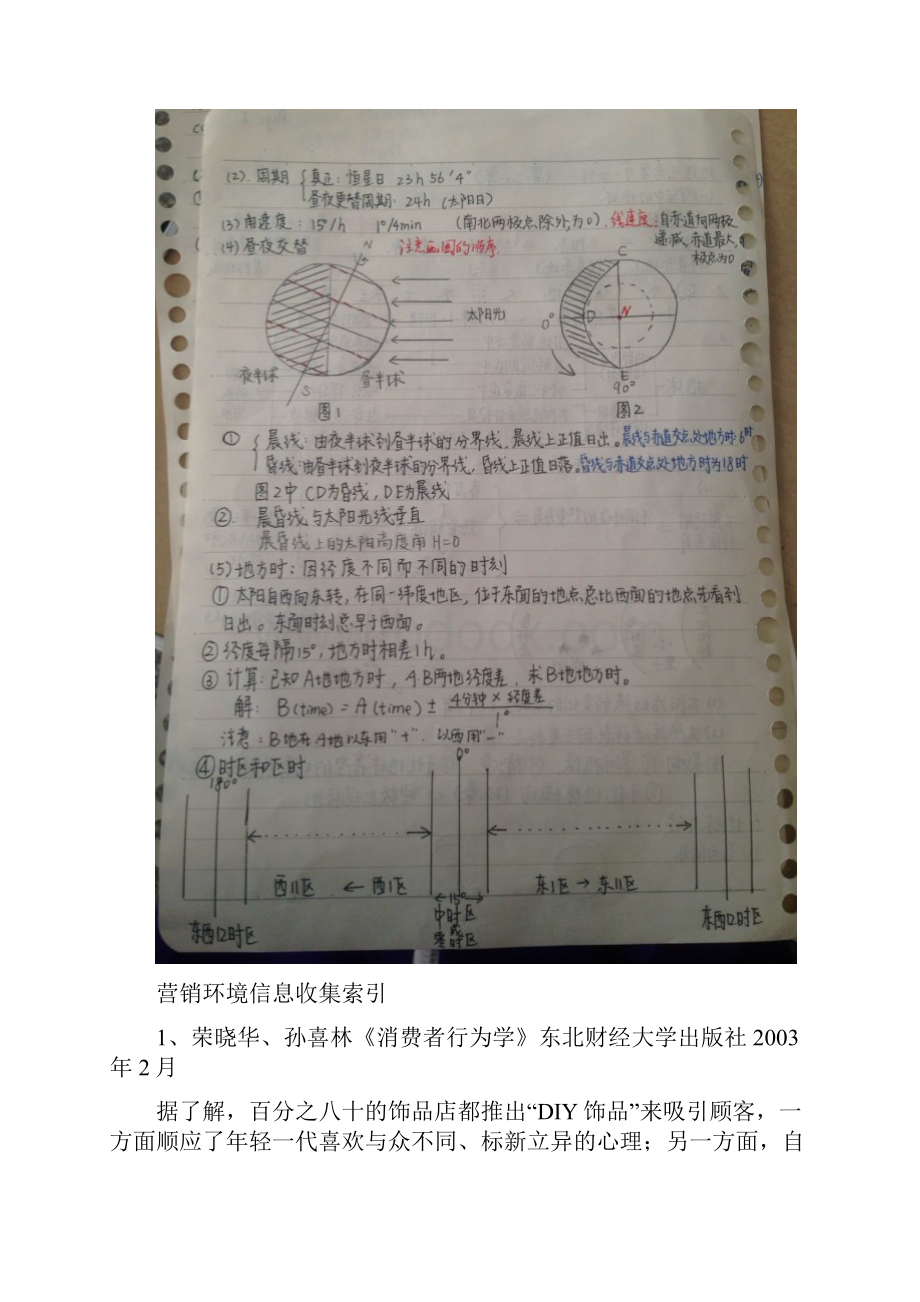 (2). 周期 { 真正: 恒星日 23h 56′4″
昼夜更替周期: 24h (太阳日)
(3) 角速度: 15°/h 1°/4min (南北两极点除外,为0). 线速度: 自赤道向两极
递减, 赤道最大,
极点为0
(4) 昼夜交替 注意画图的顺序.
N
C
太阳光
0°
D
N
S
夜半球
昼半球
E
90°
图1
图2
① { 晨线: 由夜半球到昼半球的分界线, 晨线上正值日出。晨线与赤道交点处地方时: 6时
昏线: 由昼半球到夜半球的分界线, 昏线上正值日落。昏线与赤道交点处地方时为18时
图2中 CD为昏线, DE为晨线
②. 晨昏线与太阳光线垂直
晨昏线上的太阳高度角 H=0
(5) 地方时: 因经度不同而不同的时刻
① 太阳自西向东转, 在同一纬度地区, 位于东面的地点总比西面的地点先看到
日出。东面时刻总早于西面。
② 经度每隔15°, 地方时相差1h。
③ 计算: 已知A地地方时, A B两地经度差, 求B地地方时。
解: B(time) = A(time) ± 4分钟×经度差 / 1°
注意: B地在A地以东用"+", 以西用"-"
④ 时区和区时
180°
0°
西11区 ← 西1区
东1区 → 东11区
15°
中时区
或
零时区
东西12时区
东西12时区
营销环境信息收集索引
1、荣晓华、孙喜林《消费者行为学》东北财经大学出版社 2003
年 2 月
据了解，百分之八十的饰品店都推出“DIY 饰品”来吸引顾客，一
方面顺应了年轻一代喜欢与众不同、标新立异的心理；另一方面，自